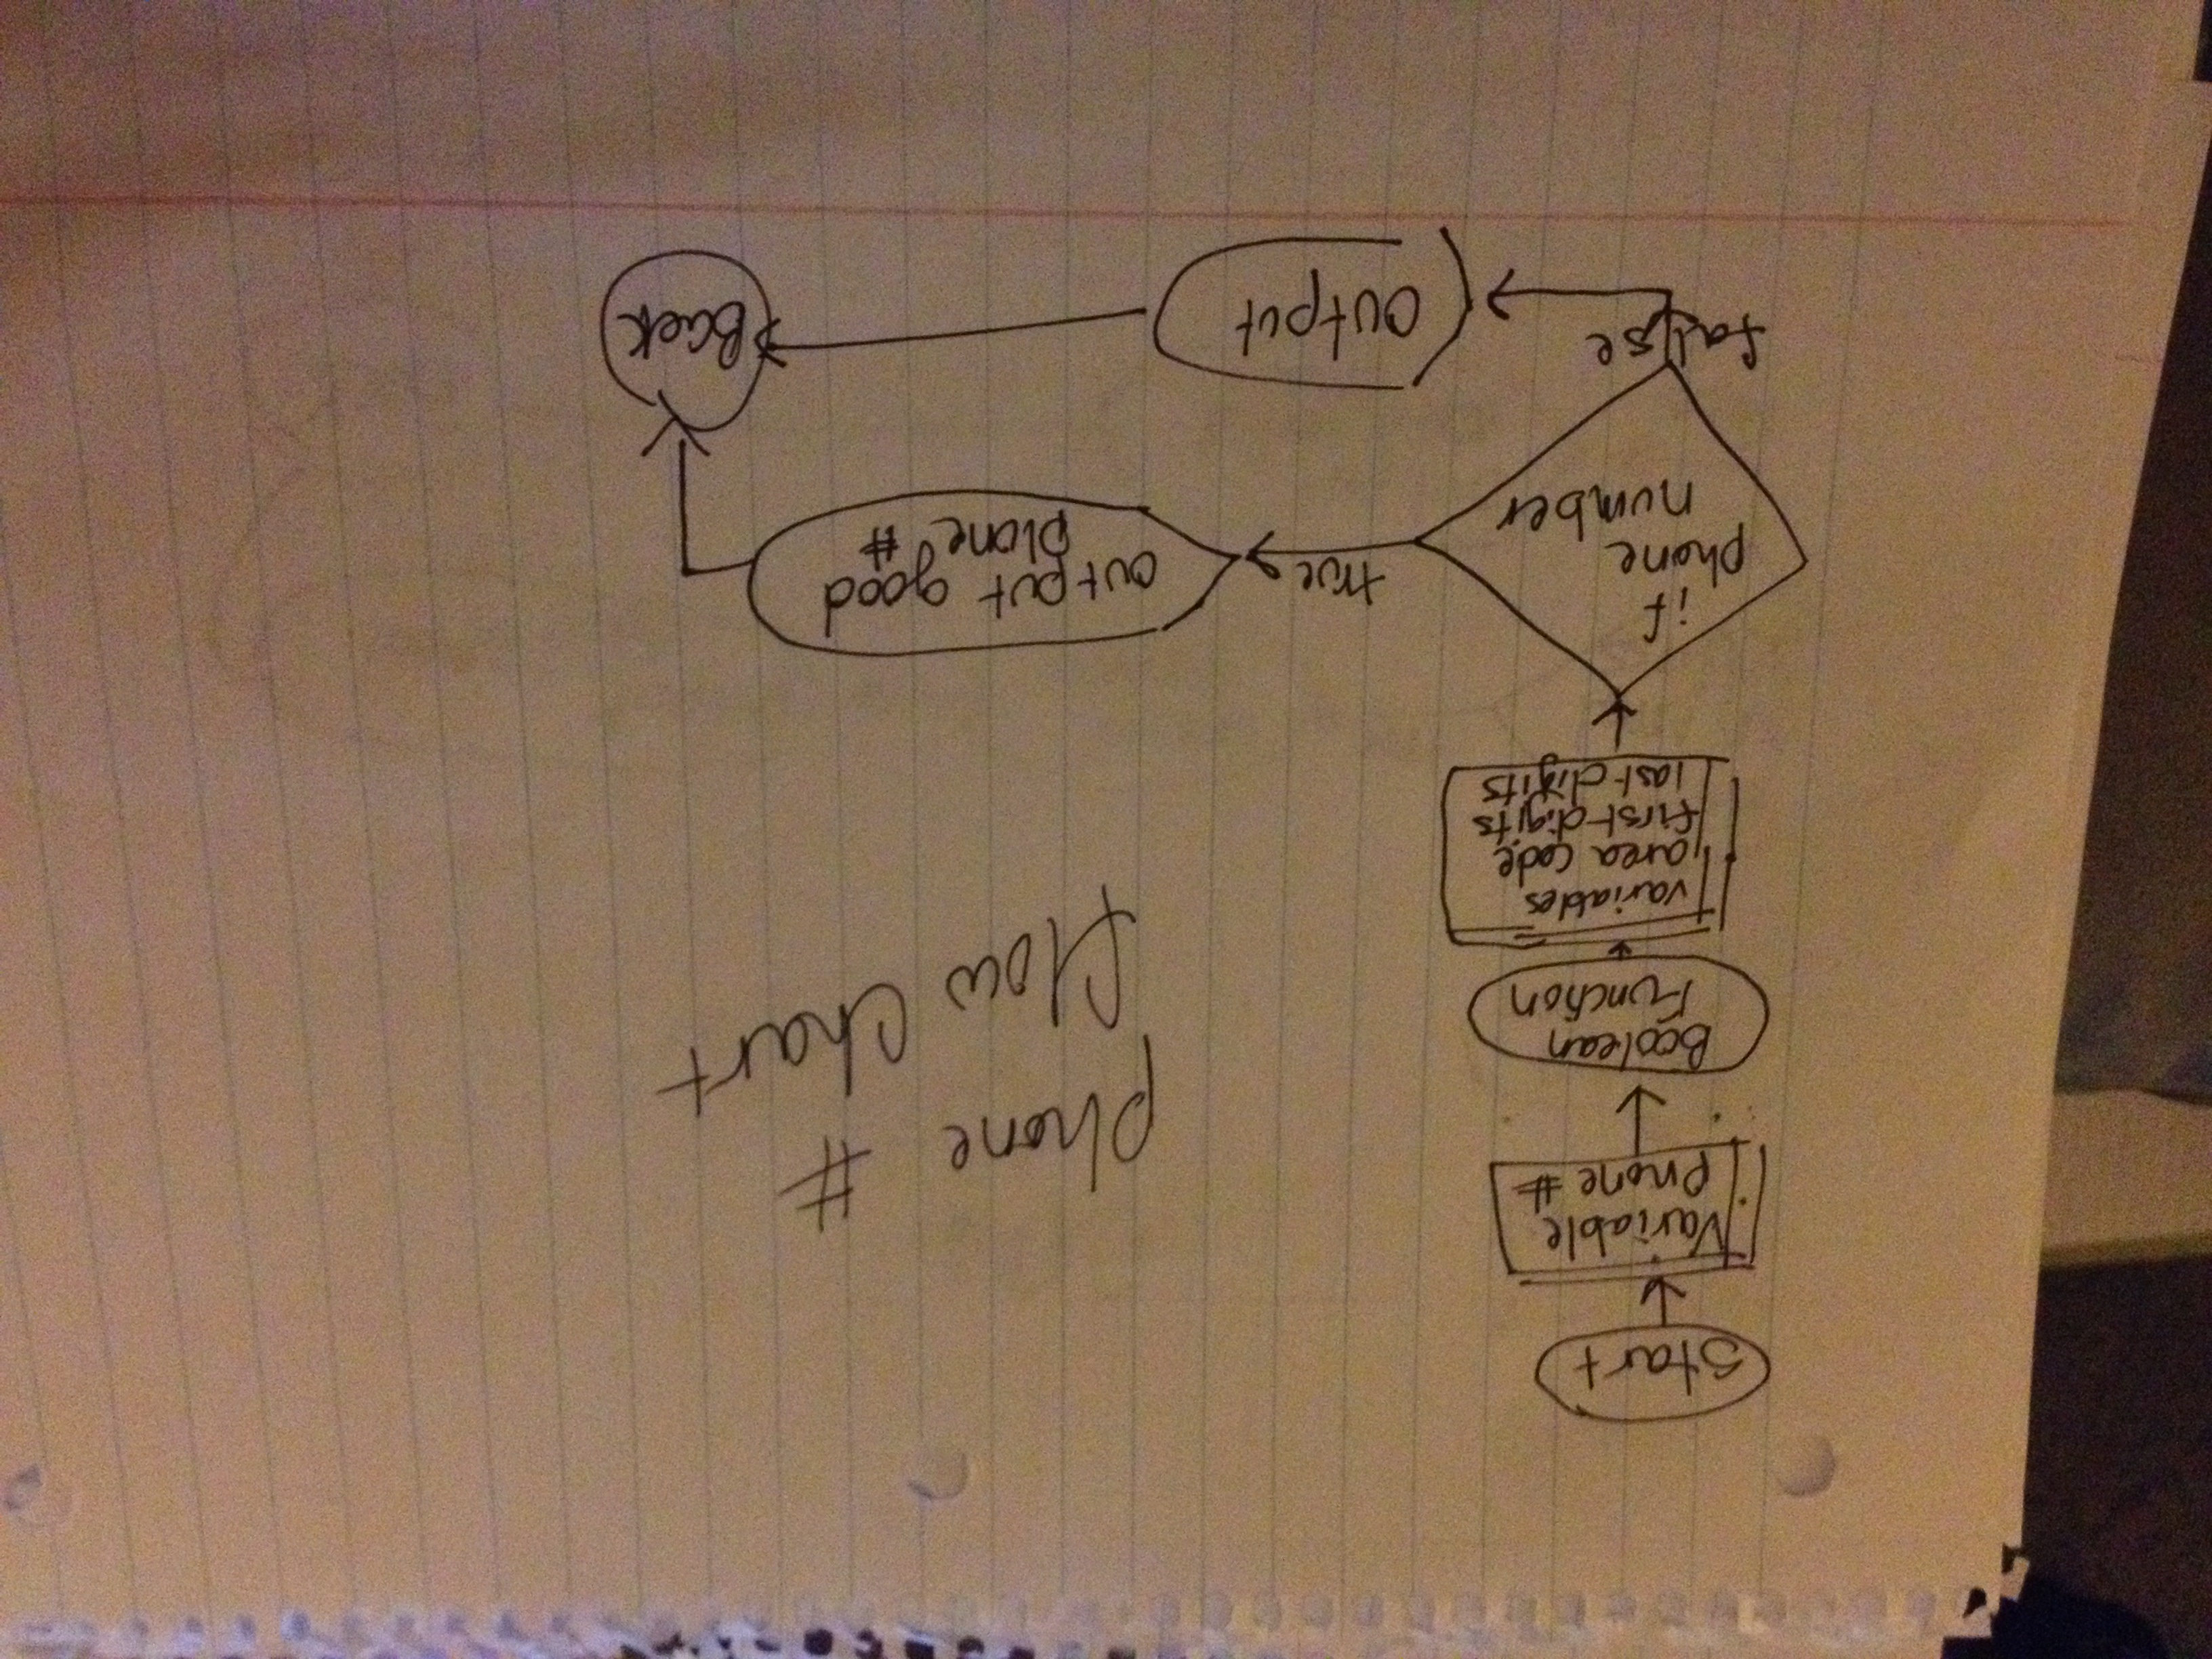 Phone #
flow Chart
Start
Variable
Phone #
Boolean
Function
variables
area code
first digits
last digits
if
phone
number
true
output good
phone #
false
output
Back